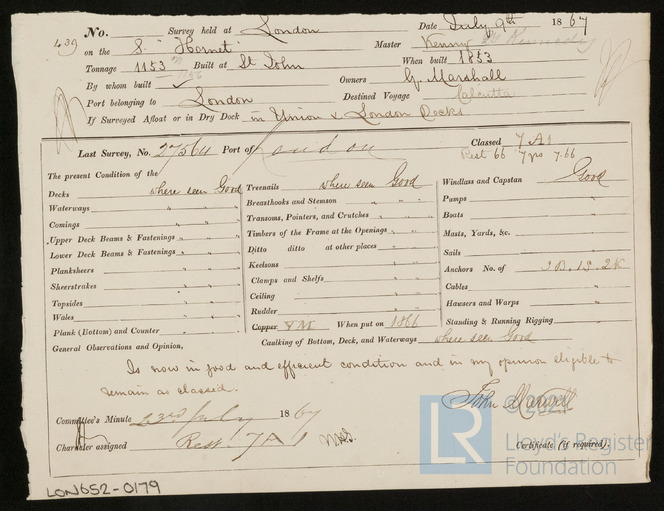 No. Survey held at London Date July 9th 1867
439 on the S. "Hornet" Master Kenny
Tonnage 1153 Built at St John When built 1853
By whom built ✓ Owners G. Marshall
Port belonging to London Destined Voyage Calcutta
If Surveyed Afloat or in Dry Dock in Union & London Docks
Last Survey, No. 27564 Port of London Classed 7 A1
Rest 66 7 yrs 7.66
The present Condition of the
Decks where seen Good
Waterways " " "
Comings " " "
Upper Deck Beams & Fastenings " " "
Lower Deck Beams & Fastenings " " "
Planksheers " " "
Sheerstrakes " " "
Topsides " " "
Wales " " "
Plank (Bottom) and Counter " " "
Treenails where seen Good
Breasthooks and Stemson " " "
Transoms, Pointers, and Crutches " " "
Timbers of the Frame at the Openings " " "
Ditto ditto at other places " "
Keelsons " "
Clamps and Shelfs " "
Ceiling " "
Rudder " "
Copper YM When put on 1866
Windlass and Capstan Good
Pumps "
Boats "
Masts, Yards, &c. "
Sails "
Anchors No. of 3B.1S.2K
Cables "
Hawsers and Warps "
Standing & Running Rigging "
Caulking of Bottom, Deck, and Waterways where seen Good
General Observations and Opinion,
Is now in good and efficient condition and in my opinion eligible to
remain as classed.
John
Committee's Minute 23rd July 1867
Character assigned Rest. 7 A 1
Certificate (if required)
LR
© 2021
Lloyd's Register
Foundation
LON652-0179